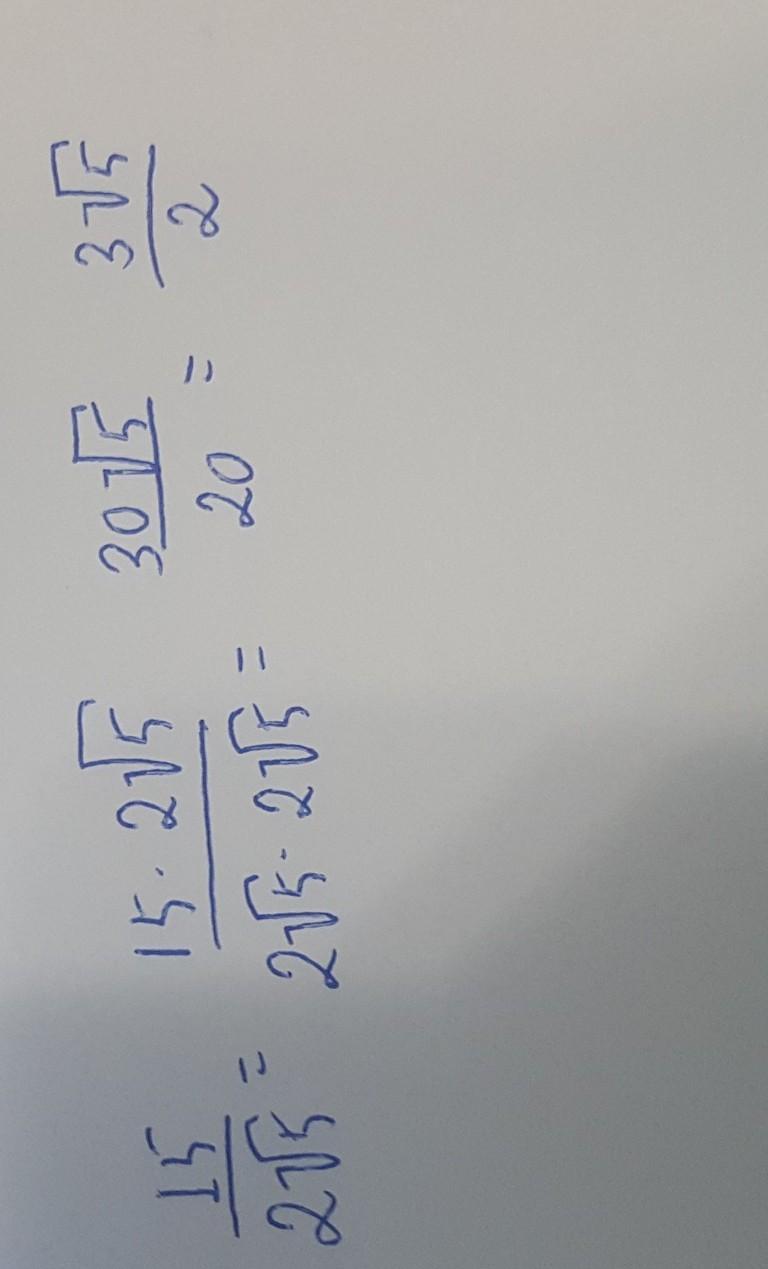 15/2√5 = 15 · 2√5/2√5 · 2√5 = 30√5/20 = 3√5/2